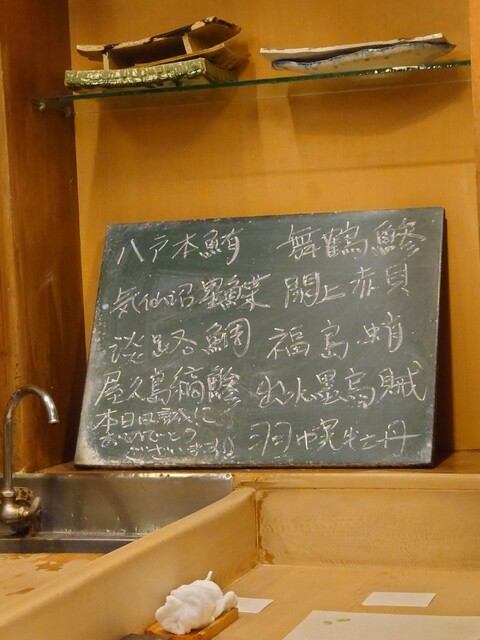 八戸本鮪
気仙沼黒鰈
淡路鯛
屋久島縞鯵
本日は誠に
おめでとう
ございます!!
舞鶴鯵
閖上赤貝
福島蛸
出水墨烏賊
羽幌牡丹